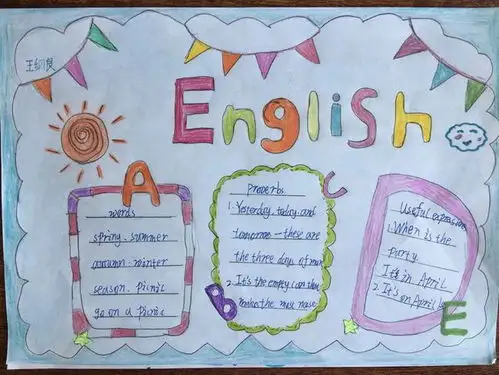 English
A
words
spring. summer
autumn. winter
season. picnic
go on a picnic
B
C
Proverbs
1. Yesterday. today. and
tomorrow — these are
the three days of man
2. It's the empty can that
makes the most noise
D
Useful expressions
1. When is the
party
It's in April
2. It's on April
E